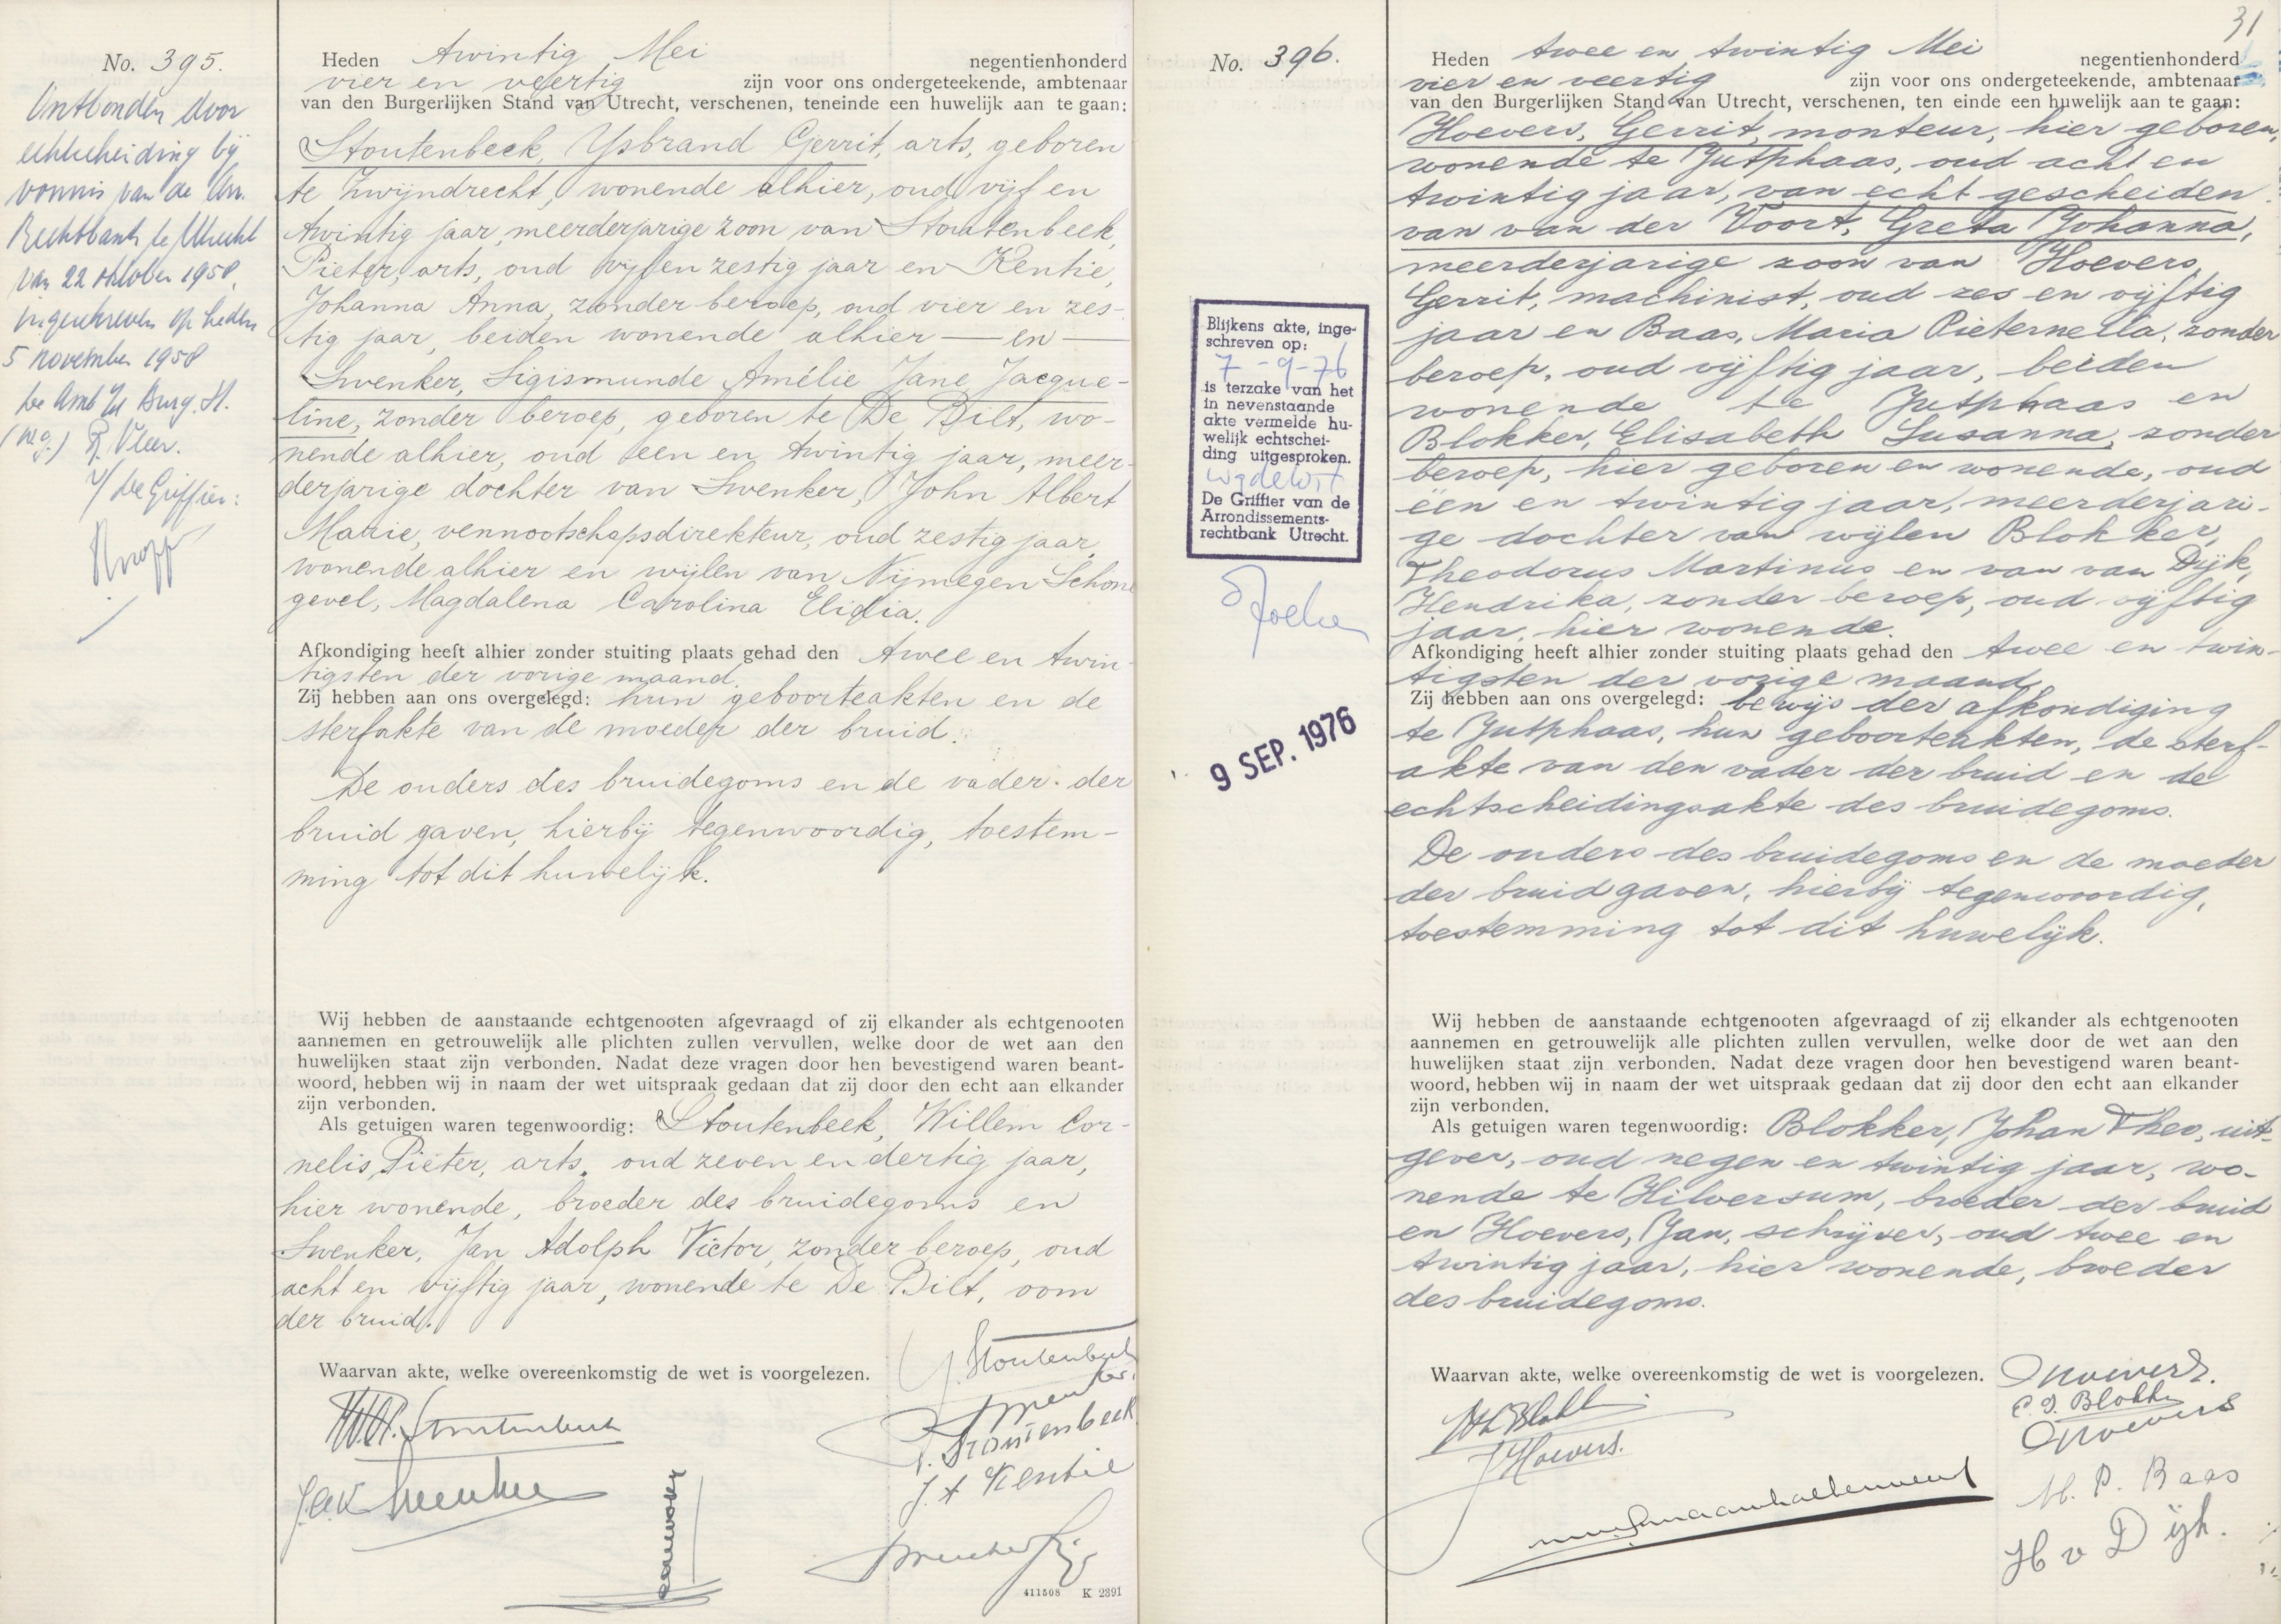 No. 395.
Ontbonden door
echtscheiding bij
vonnis van de Arr.
Rechtbank te Utrecht
van 22 oktober 1958,
ingeschreven op heden
5 november 1958
De Amb. v/d Burg. St.
(w.g.) R. Vleer.
v/ de Griffier:
Heden twintig Mei negentienhonderd
vier en veertig zijn voor ons ondergeteekende, ambtenaar
van den Burgerlijken Stand van Utrecht, verschenen, teneinde een huwelijk aan te gaan:
Stoutenbeek, Ysbrand Gerrit, arts, geboren
te Zwijndrecht, wonende alhier, oud vijf en
twintig jaar, meerderjarige zoon van Stoutenbeek,
Pieter, arts, oud vijf en zestig jaar en Kentie,
Johanna Anna, zonder beroep, oud vier en zes-
tig jaar, beiden wonende alhier — en —
Swenker, Sigismunde Amélie Jane Jacque-
line, zonder beroep, geboren te De Bilt, wo-
nende alhier, oud een en twintig jaar, meer-
derjarige dochter van Swenker, John Albert
Marie, vennootschapsdirekteur, oud zestig jaar,
wonende alhier en wijlen van Nijmegen Schone
gevel, Magdalena Carolina Elidia.
Afkondiging heeft alhier zonder stuiting plaats gehad den twee en twin-
tigsten der vorige maand.
Zij hebben aan ons overgelegd: hun geboorteakten en de
sterfakte van de moeder der bruid.
De ouders des bruidegoms en de vader der
bruid gaven, hierbij tegenwoordig, toestem-
ming tot dit huwelijk.
Wij hebben de aanstaande echtgenooten afgevraagd of zij elkander als echtgenooten
aannemen en getrouwelijk alle plichten zullen vervullen, welke door de wet aan den
huwelijken staat zijn verbonden. Nadat deze vragen door hen bevestigend waren beant-
woord, hebben wij in naam der wet uitspraak gedaan dat zij door den echt aan elkander
zijn verbonden.
Als getuigen waren tegenwoordig: Stoutenbeek, Willem Cor-
nelis Pieter, arts, oud zeven en dertig jaar,
hier wonende, broeder des bruidegoms en
Swenker, Jan Adolph Victor, zonder beroep, oud
acht en vijftig jaar, wonende te De Bilt, oom
der bruid.
Waarvan akte, welke overeenkomstig de wet is voorgelezen.
Y. Stoutenbeek
W.C.P. Stoutenbeek
P. Stoutenbeek
J. A Kentie
J.A.V. Swenker
411508 K 2391
31
No. 396.
Blijkens akte, inge-
schreven op:
7-9-76
is terzake van het
in nevenstaande
akte vermelde hu-
welijk echtschei-
ding uitgesproken.
De Griffier van de
Arrondissements-
rechtbank Utrecht.
9 SEP. 1976
Heden twee en twintig Mei negentienhonderd
vier en veertig zijn voor ons ondergeteekende, ambtenaar
van den Burgerlijken Stand van Utrecht, verschenen, ten einde een huwelijk aan te gaan:
Hoevers, Gerrit, monteur, hier geboren,
wonende te Jutphaas, oud acht en
twintig jaar, van echt gescheiden
van van der Voort, Greta Johanna,
meerderjarige zoon van Hoevers,
Gerrit, machinist, oud zes en vijftig
jaar en Baas, Maria Pieternella, zonder
beroep, oud vijftig jaar, beiden
wonende te Jutphaas en
Blokker, Elisabeth Susanna, zonder
beroep, hier geboren en wonende, oud
een en twintig jaar, meerderjari-
ge dochter van wijlen Blokker,
Theodorus Martinus en van van Dijk,
Hendrika, zonder beroep, oud vijftig
jaar, hier wonende.
Afkondiging heeft alhier zonder stuiting plaats gehad den twee en twin-
tigsten der vorige maand
Zij hebben aan ons overgelegd: bewijs der afkondiging
te Jutphaas, hun geboorteakten, de sterf-
akte van den vader der bruid en de
echtscheidingsakte des bruidegoms.
De ouders des bruidegoms en de moeder
der bruid gaven, hierbij tegenwoordig,
toestemming tot dit huwelijk.
Wij hebben de aanstaande echtgenooten afgevraagd of zij elkander als echtgenooten
aannemen en getrouwelijk alle plichten zullen vervullen, welke door de wet aan den
huwelijken staat zijn verbonden. Nadat deze vragen door hen bevestigend waren beant-
woord, hebben wij in naam der wet uitspraak gedaan dat zij door den echt aan elkander
zijn verbonden.
Als getuigen waren tegenwoordig: Blokker, Johan Theo, uit-
gever, oud negen en twintig jaar, wo-
nende te Hilversum, broeder der bruid
en Hoevers, Jan, schrijver, oud twee en
twintig jaar, hier wonende, broeder
des bruidegoms.
Waarvan akte, welke overeenkomstig de wet is voorgelezen.
GHoevers.
E. S. Blokker
GHoevers
J Hoevers.
M. P. Baas
H v Dijk.